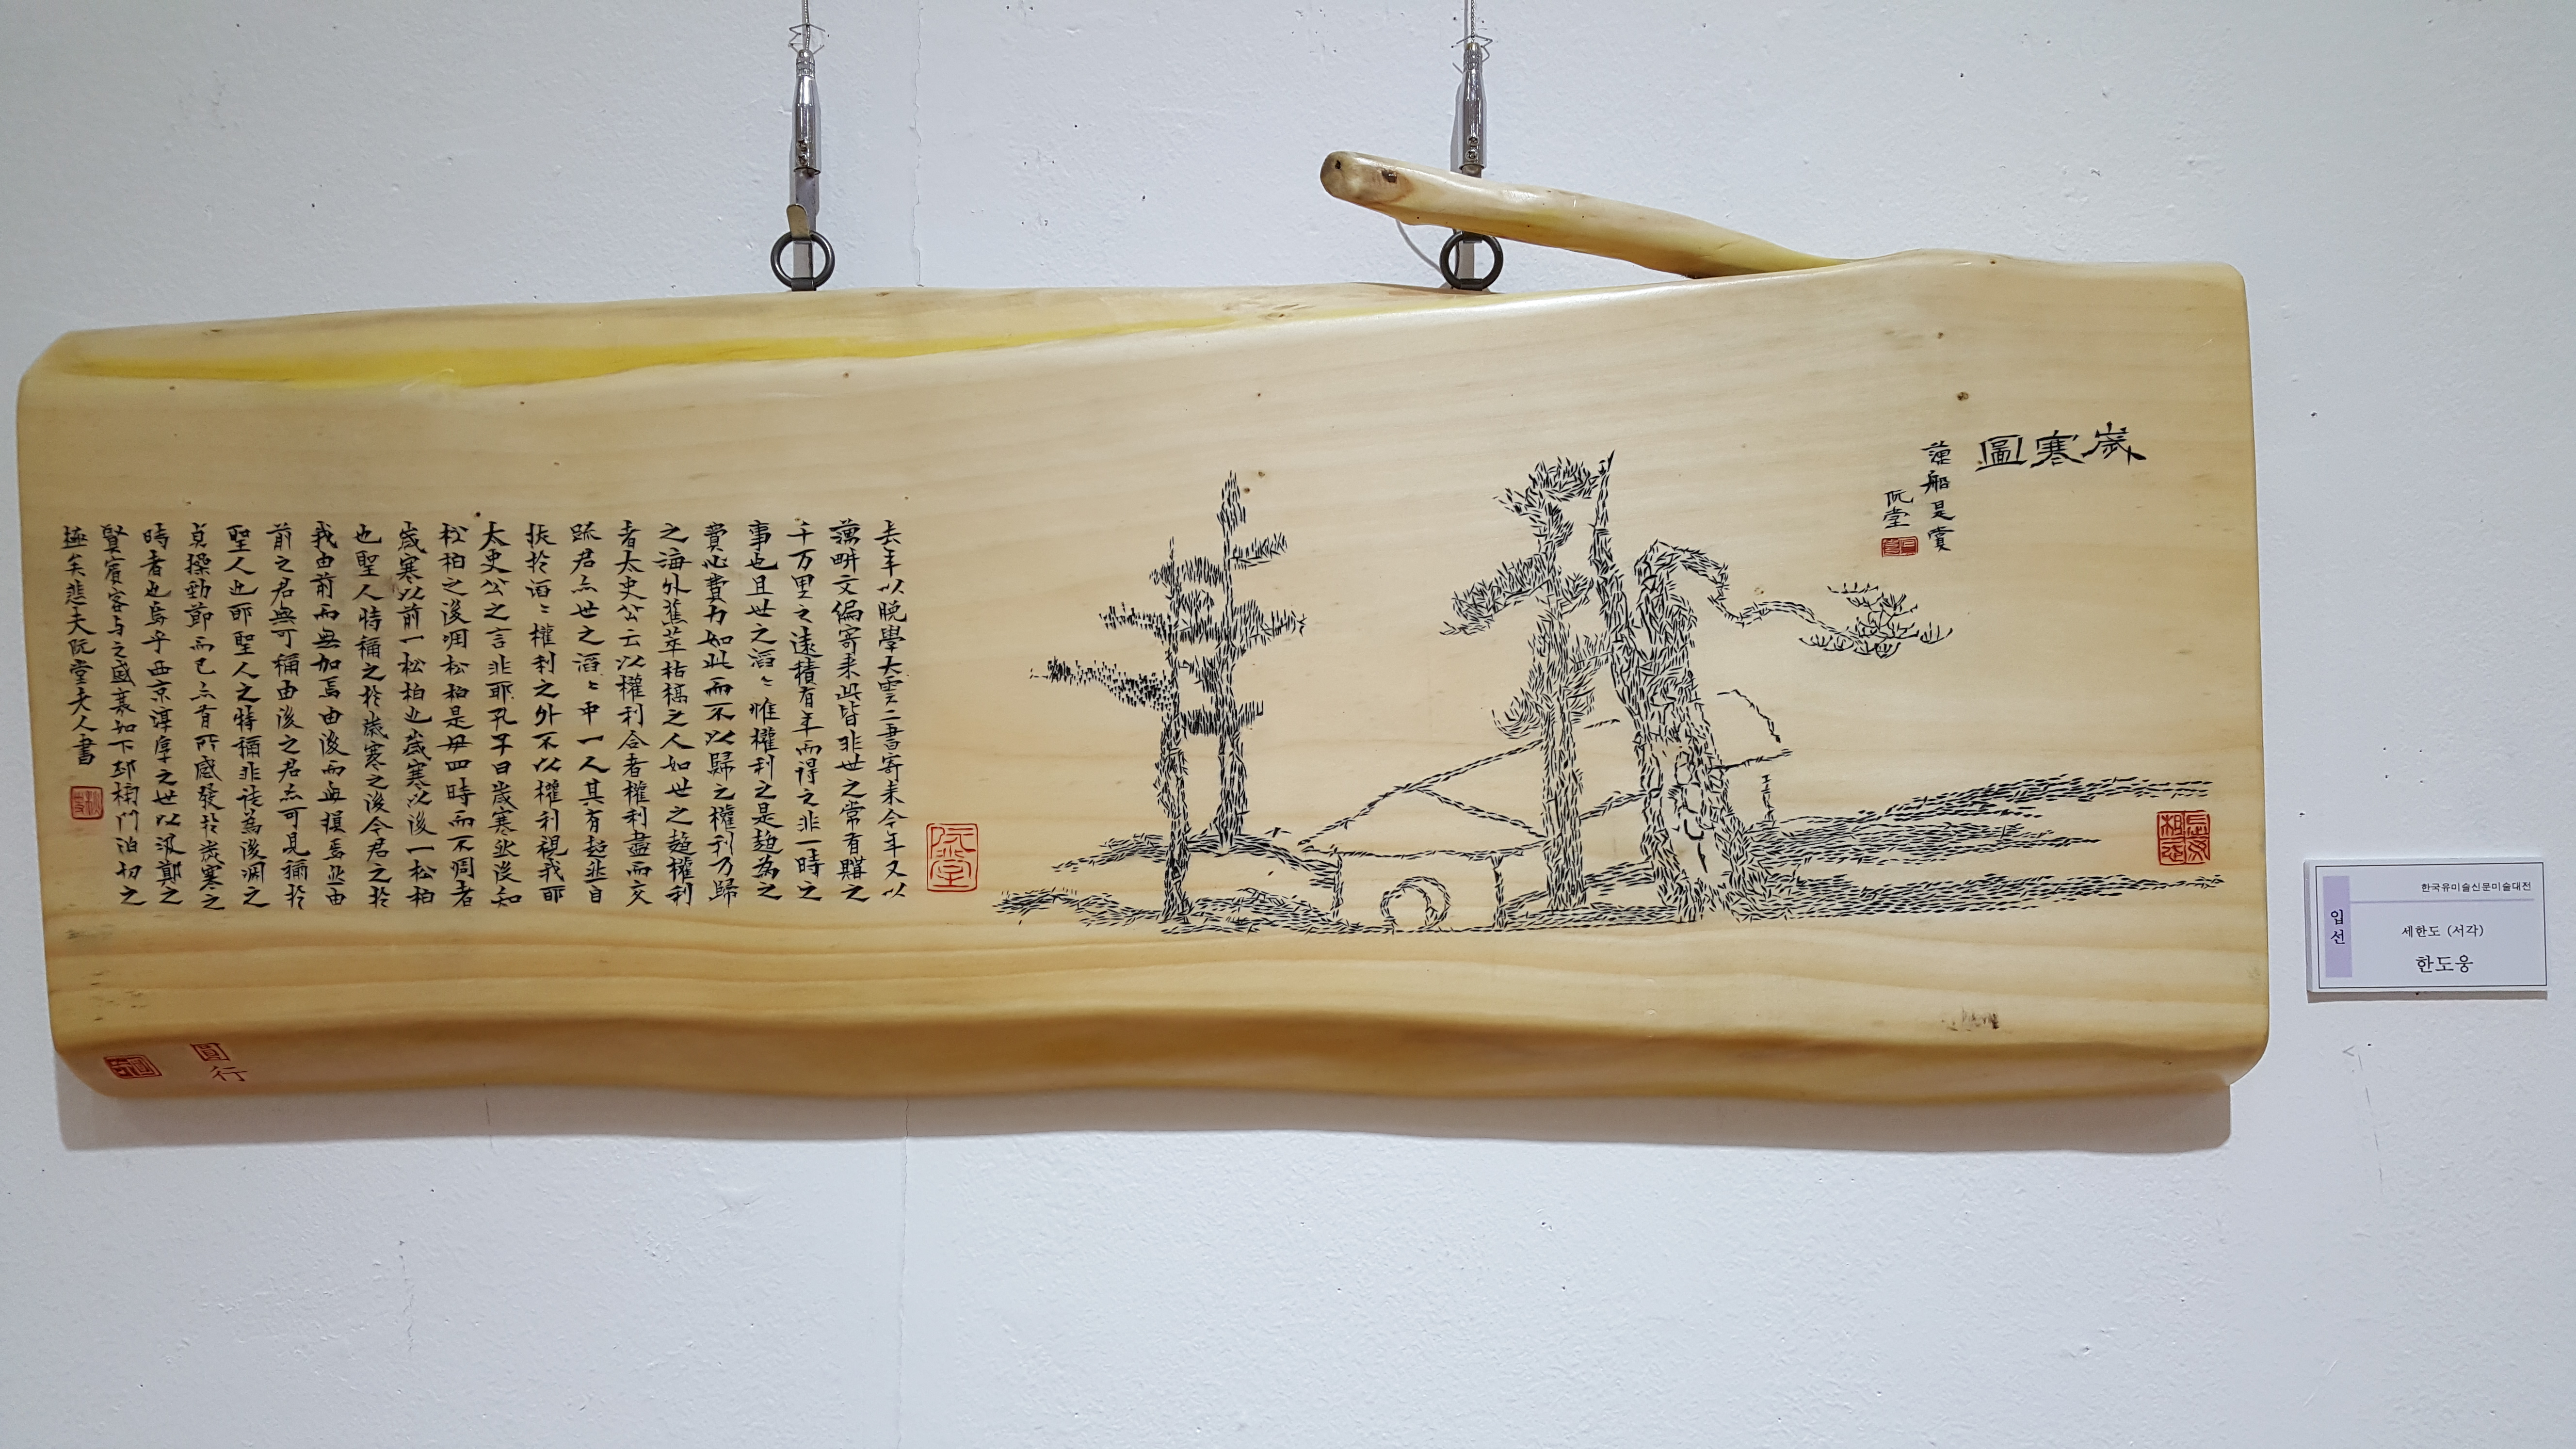 歲寒圖
藕船是賞
阮堂
去年以晩學大雲二書寄來今年又以
藕畊文偏寄來此皆非世之常有購之
千万里之遠積有年而得之非一時之
事也且世之滔〻惟權利之是趨為之
費心費力如此而不以歸之權利乃歸
之海外蕉萃枯槁之人如世之趨權利
者太史公云以權利合者權利盡而交
踈君亦世之滔〻中一人其有超然自
拔於滔〻權利之外不以權利視我耶
太史公之言非耶孔子曰歲寒然後知
松柏之後凋松柏是毋四時而不凋者
歲寒以前一松柏也歲寒以後一松柏
也聖人特稱之於歲寒之後今君之於
我由前而無加焉由後而無損焉然由
前之君無可稱由後之君亦可見稱於
聖人也耶聖人之特稱非徒為後凋之
貞操勁節而已亦有所感發於歲寒之
時者也烏乎西京淳厚之世以汲鄭之
賢賓客与之盛衰如下邳榜門迫切之
極矣悲夫阮堂老人書
阮堂
長毋相忘
圓行
한국유미술신문미술대전
입선
세한도 (서각)
한도웅